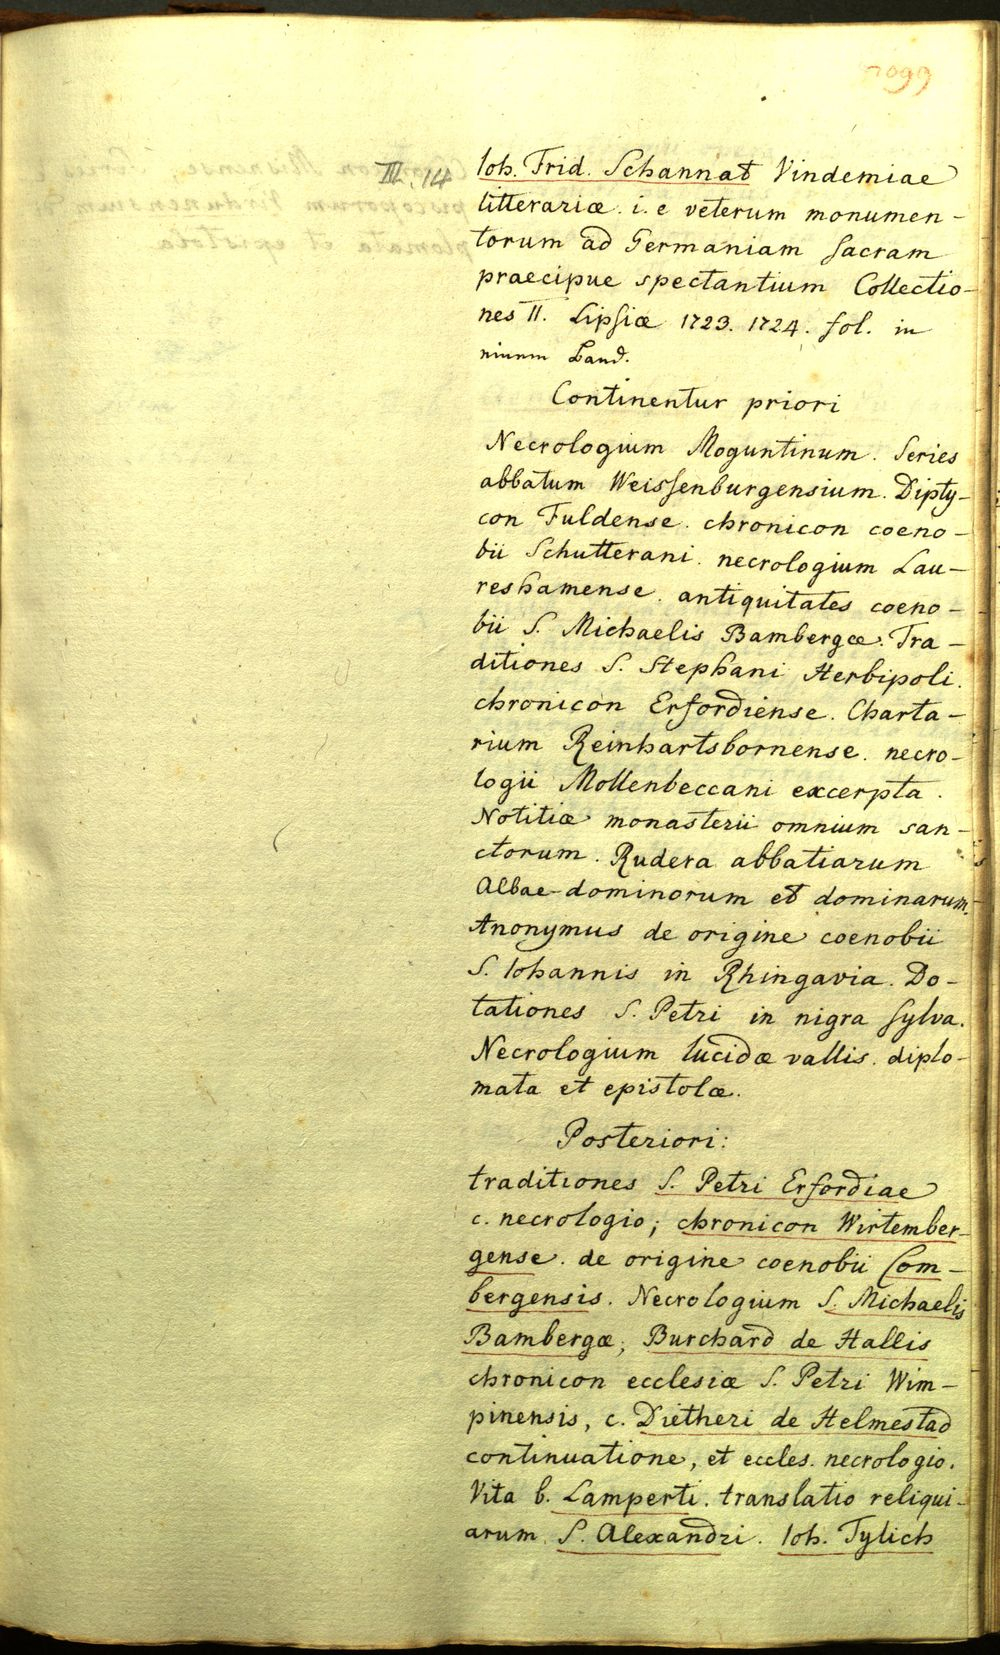 7099
III. 14
Ioh. Frid. Schannat Vindemiae
litterariæ. i. e veterum monumen-
torum ad Germaniam sacram
praecipue spectantium Collectio-
nes II. Lipsiæ 1723. 1724. fol. in
einem Band.
Continentur priori
Necrologium Moguntinum. Series
abbatum Weissenburgensium. Dipty-
con Fuldense. chronicon coeno-
bii Schutterani. necrologium Lau-
reshamense. antiquitates coeno-
bii S. Michaelis Bambergæ. Tra-
ditiones S. Stephani Herbipoli.
chronicon Erfordiense. Charta-
rium Reinhartsbornense. necro-
logii Mollenbeccani excerpta.
Notitiæ monasterii omnium san-
ctorum. Rudera abbatiarum
Albae-dominorum et dominarum.
Anonymus de origine coenobii
S. Iohannis in Rhingavia. Do-
tationes S. Petri in nigra sylva.
Necrologium lucidæ vallis. diplo-
mata et epistolæ.
Posteriori:
traditiones S. Petri Erfordiae
c. necrologio; chronicon Wirtember-
gense. de origine coenobii Com-
bergensis. Necrologium S. Michaelis
Bambergæ; Burchard de Hallis
chronicon ecclesiæ S. Petri Wim-
pinensis, c. Dietheri de Helmestad
continuatione, et eccles. necrologio.
Vita b. Lamperti. translatio reliqui-
arum S. Alexandri. Ioh. Tylich